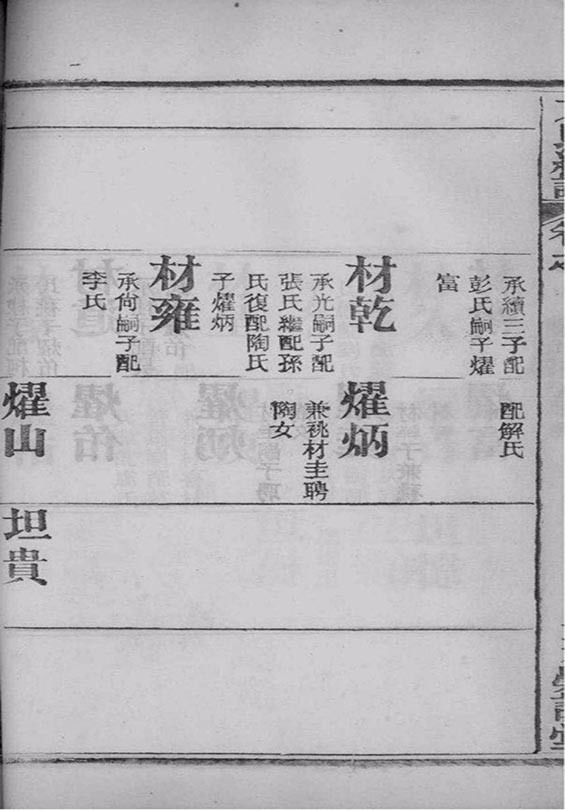 承續三子配
彭氏嗣子燿
富
配解氏
材乾
承光嗣子配
張氏繼配孫
氏復配陶氏
子燿炳
燿炳
兼祧材圭聘
陶女
材雍
承尙嗣子配
李氏
燿山
坦貴